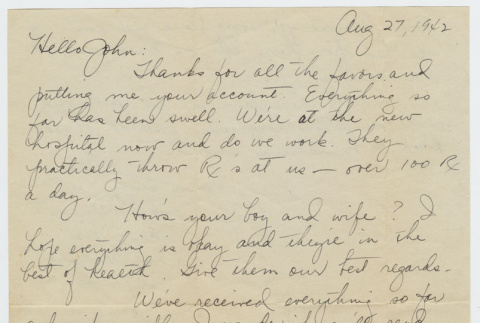 Aug 27, 1942
Hello John:
Thanks for all the favors and
putting me your account. Everything so
far has been swell. We're at the new
hospital now and do we work. They
practically throw Rx's at us — over 100 Rx
a day.
How's your boy and wife? I
hope everything is okay and they're in the
best of health. Give them our best regards.
We've received everything so far